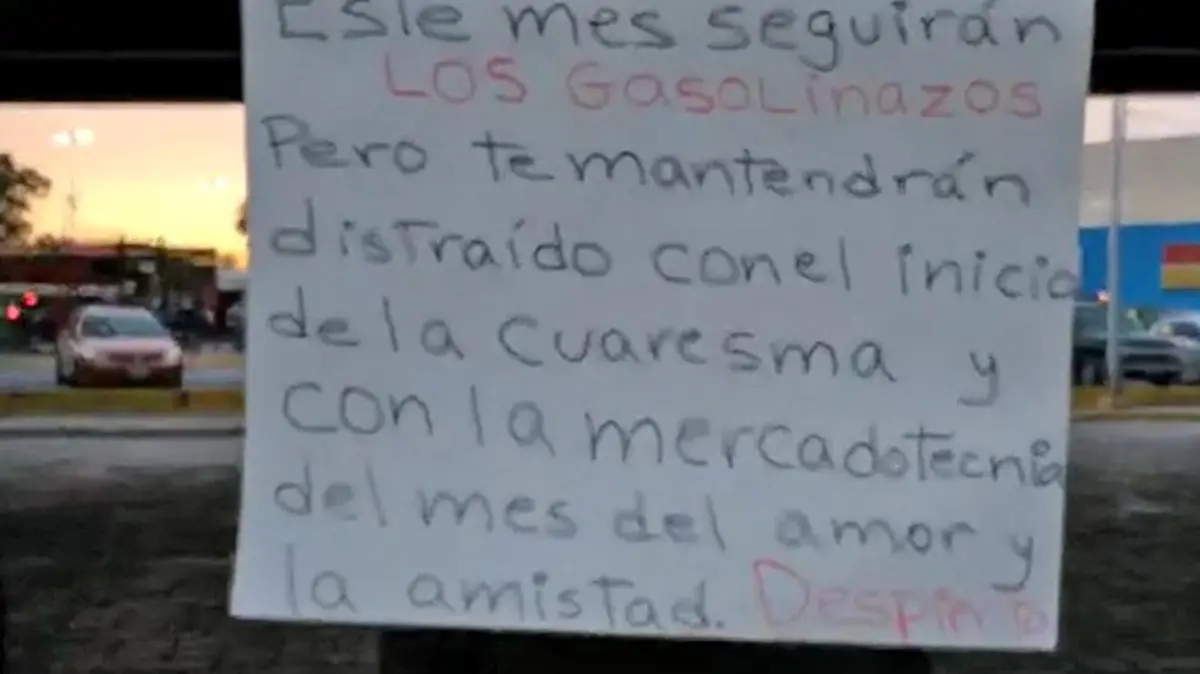 Este mes seguirán
LOS GasoLinazos
Pero te mantendrán
distraído con el inicio
de la cuaresma y
con la mercadotecnia
del mes del amor y
la amistad.